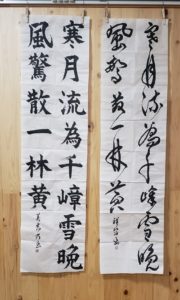 寒月流為千嶂雪晚
風驚散一林黃
寒月流為千嶂雪晚
風驚散一林黃